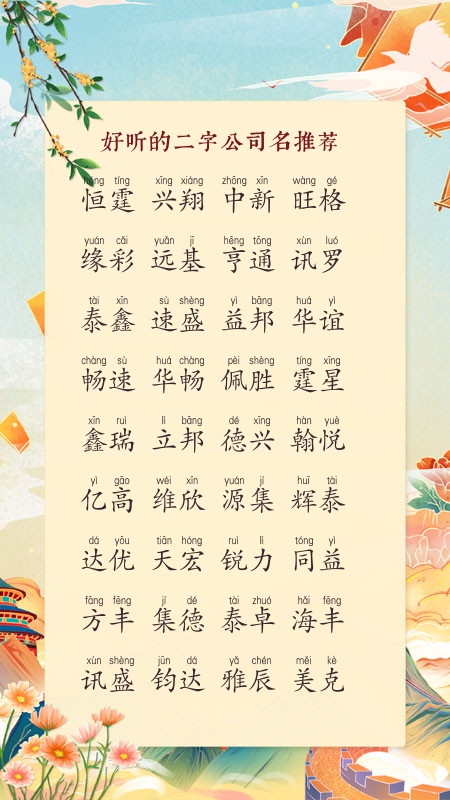 好听的二字公司名推荐
héng tíng xīng xiáng zhōng xīn wàng gé
恒霆 兴翔 中新 旺格
yuán cǎi yuǎn jī hēng tōng xùn luó
缘彩 远基 亨通 讯罗
tài xīn sù shèng yì bāng huá yì
泰鑫 速盛 益邦 华谊
chàng sù huá chàng pèi shèng tíng xīng
畅速 华畅 佩胜 霆星
xīn ruì lì bāng dé xīng hàn yuè
鑫瑞 立邦 德兴 翰悦
yì gāo wéi xīn yuán jí huī tài
亿高 维欣 源集 辉泰
dá yōu tiān hóng ruì lì tóng yì
达优 天宏 锐力 同益
fāng fēng jí dé tài zhuó hǎi fēng
方丰 集德 泰卓 海丰
xùn shèng jūn dá yǎ chén měi kè
讯盛 钧达 雅辰 美克